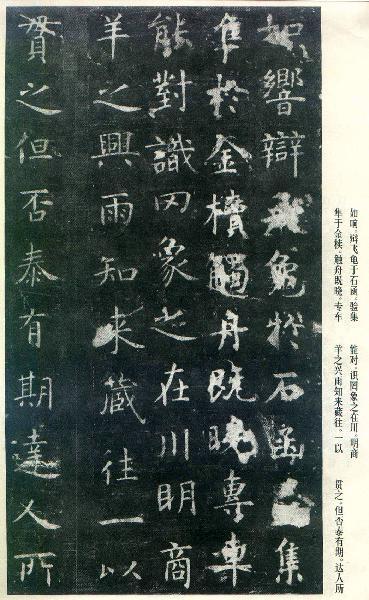 如響辯飛龜於石函驗集
隼於金櫝觸舟既曉專車
能對識罔象之在川明商
羊之興雨知来藏往一以
貫之但否泰有期達人所
如响，辩飞龟于石函。验集
隼于金椟，触舟既晓，专车
能对，识罔象之在川，明商
羊之兴雨知来藏往。一以
贯之，但否泰有期。达人所